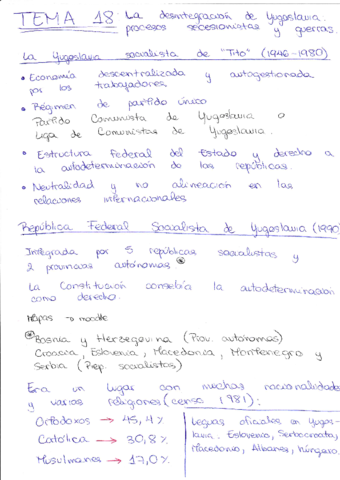 TEMA 18: La desintegración de Yugoslavia:
procesos secesionistas y guerras.
La Yugoslavia socialista de "Tito" (1946-1980)
• Economía descentralizada y autogestionada
por los trabajadores.
• Régimen de partido único
Partido Comunista de Yugoslavia o
Liga de Comunistas de Yugoslavia.
• Estructura Federal del Estado y derecho a
la autodeterminación de las repúblicas.
• Neutralidad y no alineación en las
relaciones internacionales
República Federal Socialista de Yugoslavia (1990)
Integrada por 5 repúblicas socialistas y
2 provincias autónomas *
La Constitución consebía la autodeterminación
como derecho.
Mapas → moodle
* Bosnia y Herzegovina (Prov. autónomas)
Croacia, Eslovenia, Macedonia, Montenegro y
Serbia (Rep. socialistas)
Era un lugar con muchas nacionalidades
y varias religiones (censo 1981):
Ortodoxos → 45,4%
Católica → 30,8%
Musulmanes → 17,0%
Lenguas oficiales en Yugos-
lavia. Eslovenia, Serbocroata,
Macedonio, Albanés, Húngaro.